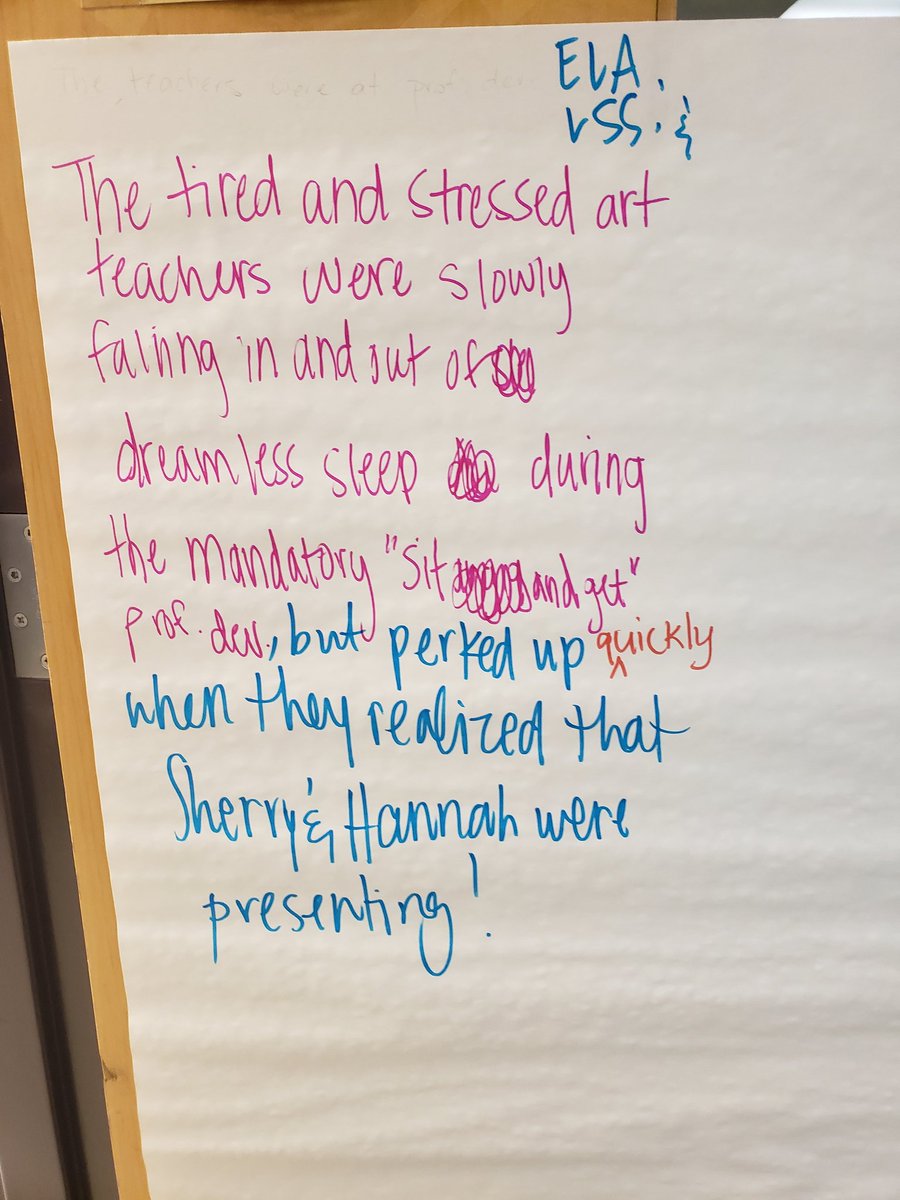 The teachers were at prof. dev
ELA,
VSS. &
The tired and stressed art
teachers were slowly
falling in and out of
dreamless sleep during
the mandatory "sit and get"
prof. dev., but perked up quickly
when they realized that
Sherry & Hannah were
presenting!